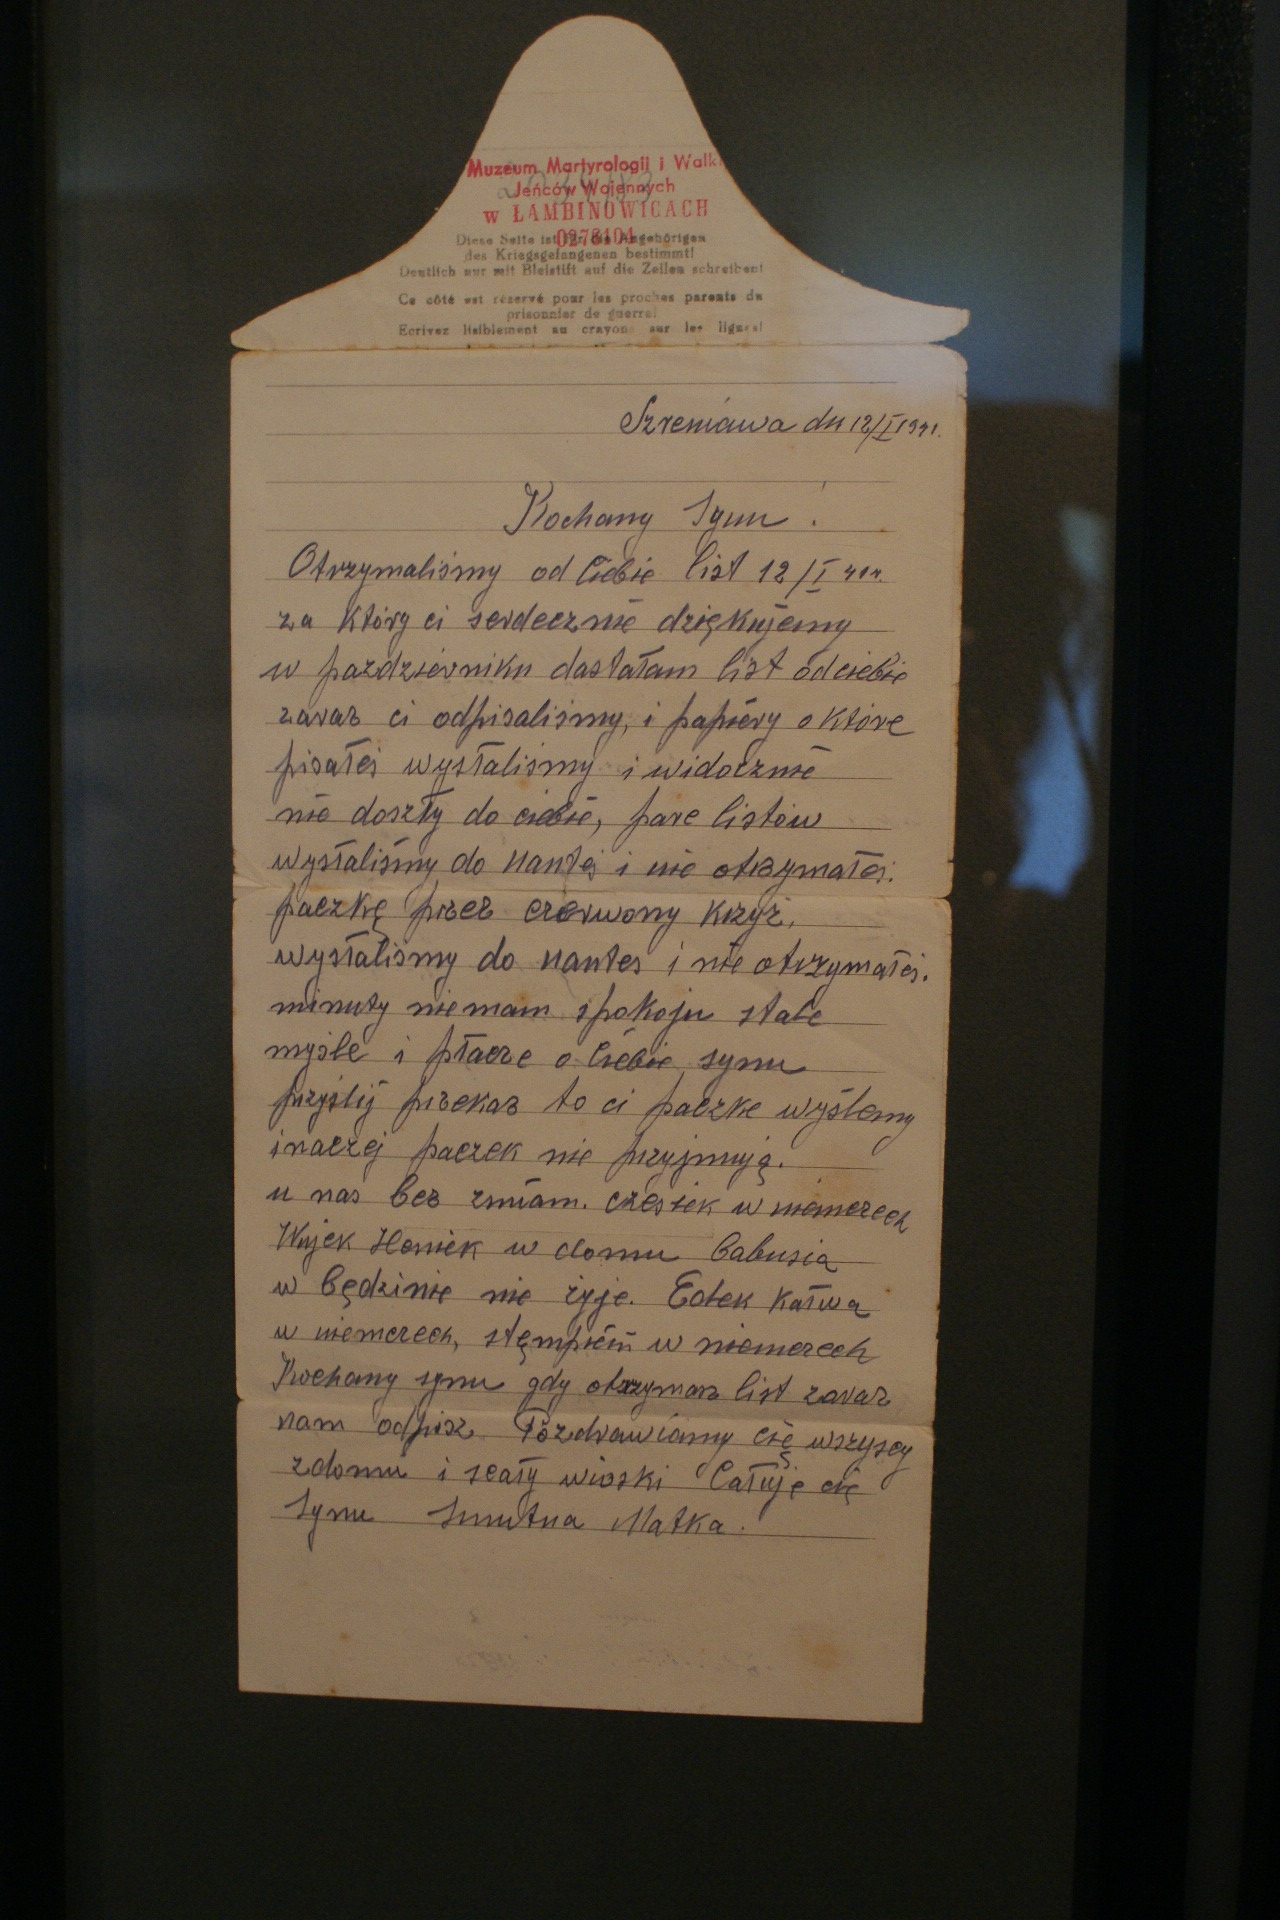 Muzeum Martyrologii i Walki
Jeńców Wojennych
w ŁAMBINOWICACH
0278104
Diese Seite ist für die Angehörigen
des Kriegsgefangenen bestimmt!
Deutlich nur mit Bleistift auf die Zeilen schreiben!
Ce côté est réservé pour les proches parents du
prisonnier de guerre!
Ecrivez lisiblement au crayon sur les lignes!
Szreniawa dn 12/I 1941.
Kochany Synu !
Otrzymaliśmy od Ciebie list 12/I 41r.
za który ci serdecznie dziękujemy
w pazdzierniku dastałam list od ciebie
zaraz ci odpisaliśmy, i papiery o które
pisałeś wysłaliśmy i widocznie
nie doszły do ciebie, pare listów
wysłaliśmy do Nantes i nie otrzymałeś.
paczkę przez czerwony krzyż,
wysłaliśmy do Nantes i nie otrzymałeś.
minuty niemam spokoju stale
myśle i płacze o Ciebie, synu
przyślij przekaz to ci paczke wyślemy
inaczej paczek nie przyjmują.
u nas bez zmian. czesiek w niemczech
Wujek Heniek w domu babusia
w będzinie nie żyje. Edek Kałwa
w niemczech, stęmpień w niemczech
Kochany synu gdy otrzymasz list zaraz
nam odpisz. Pozdrawiamy cię wszyscy
zdomu i scały wioski Całuję cię
Synu Smutna Matka.